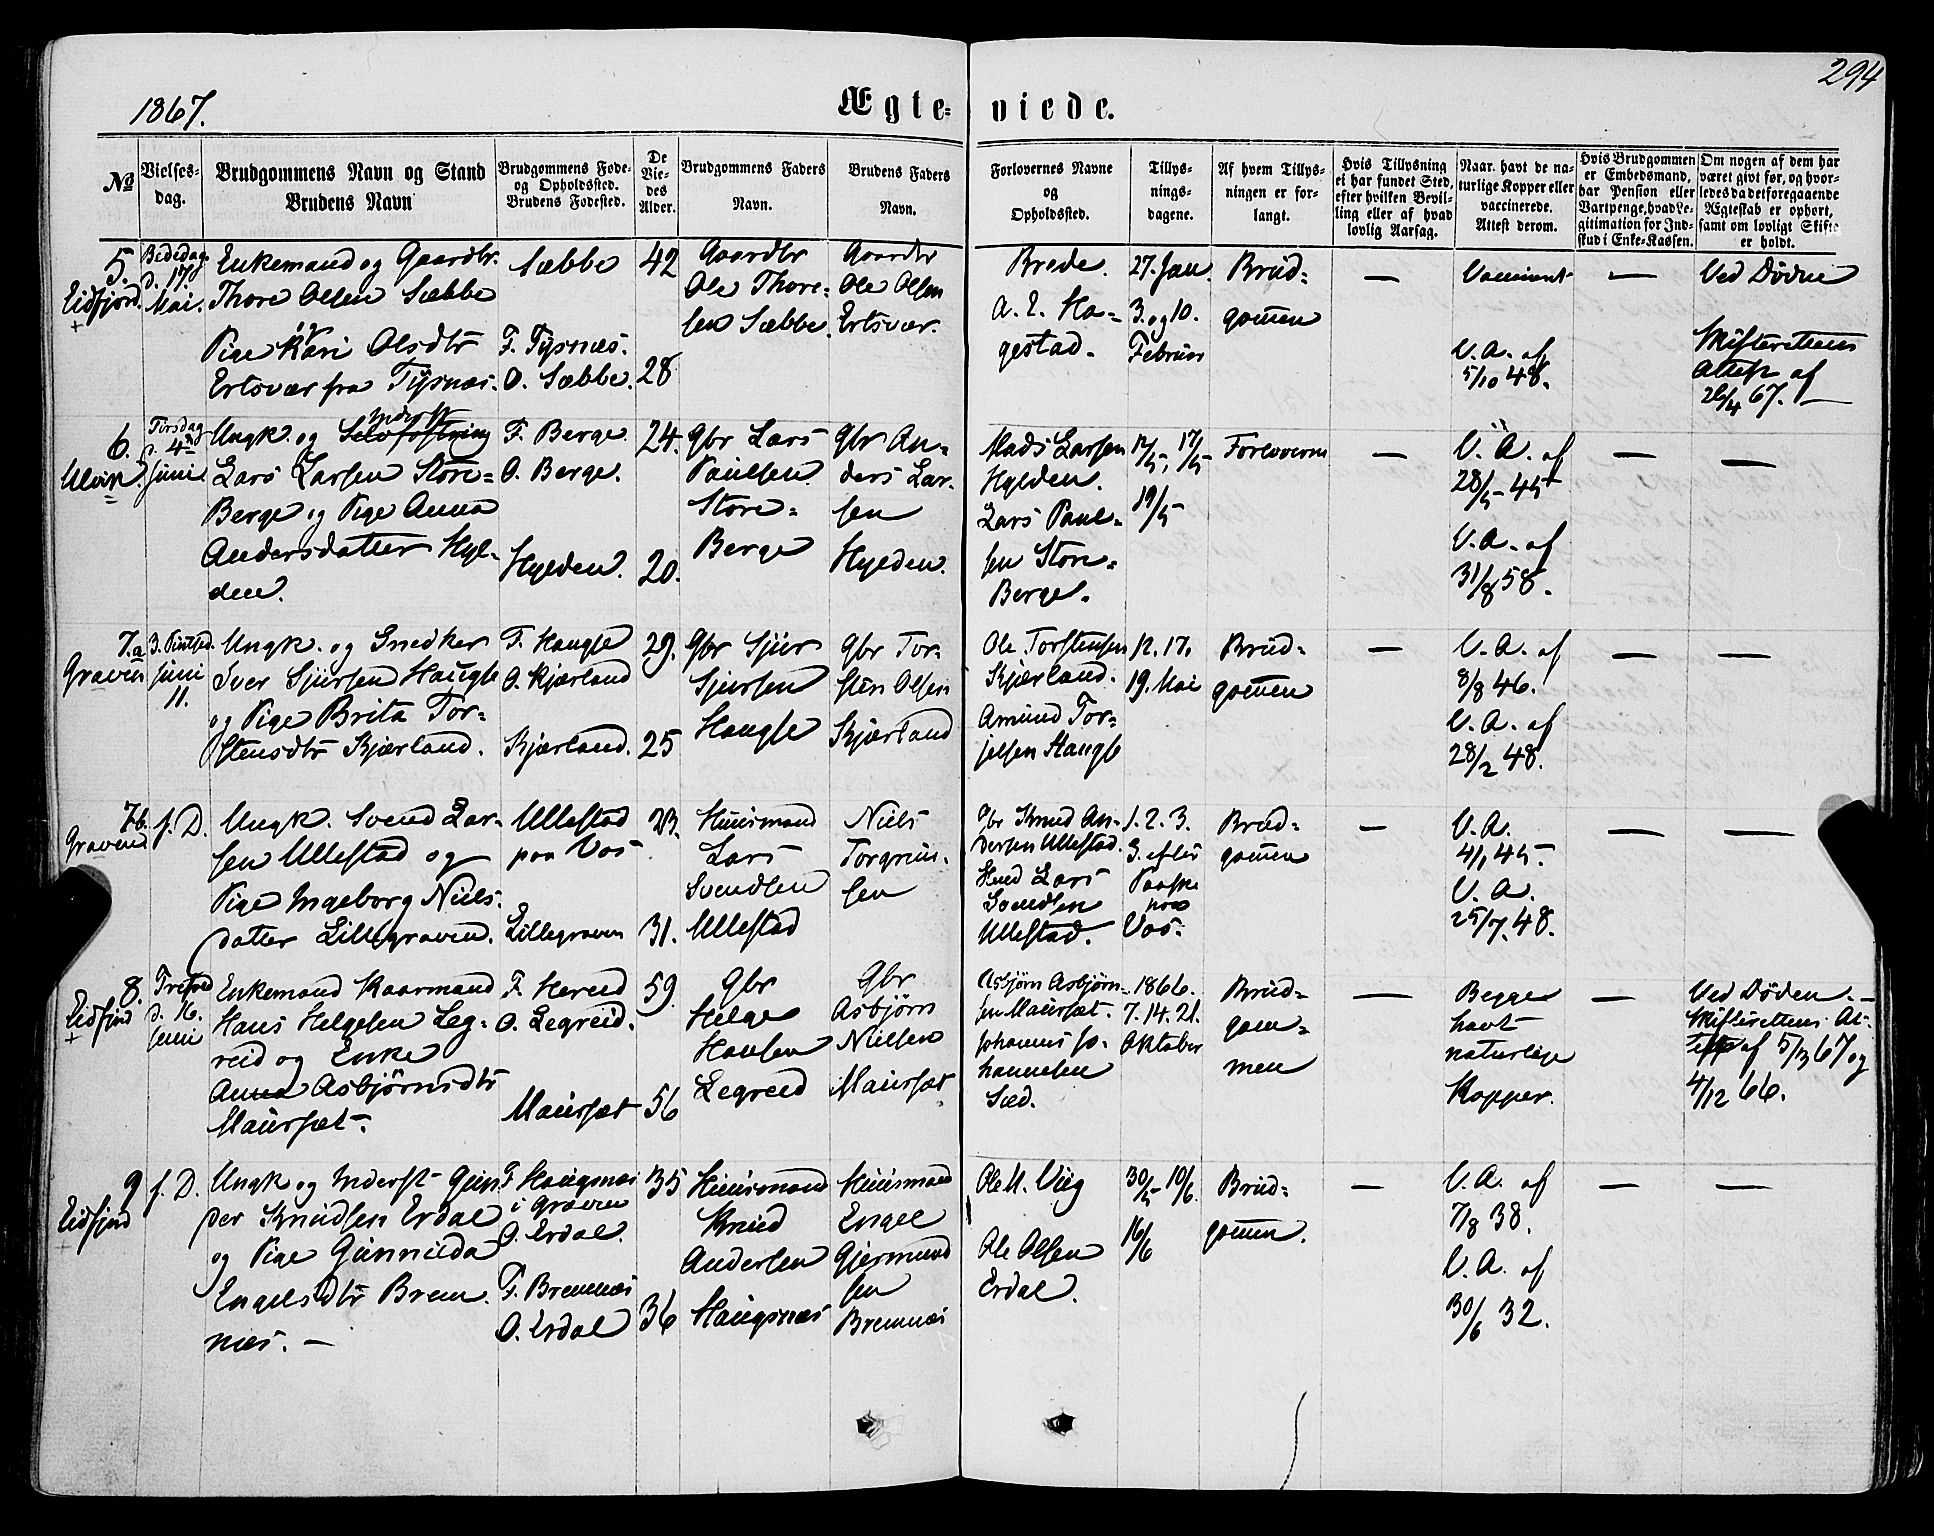 294
1867.
Ægte- viede.
No
Vielses-
dag.
Brudgommens Navn og Stand
Brudens Navn
Brudgommens Føde-
og Opholdssted.
Brudens Fødested.
De
Vie-
des
Alder.
Brudgommens Faders
Navn.
Brudens Faders
Navn.
Forlovernes Navne
og
Opholdssted.
Tillys-
nings-
dagene.
Af hvem Tillys-
ningen er for-
langt.
Hvis Tillysning
ei har fundet Sted,
efter hvilken Bevil-
ling eller af hvad
lovlig Aarsag.
Naar. havt de na-
turlige Kopper eller
vaccinerede.
Attest derom.
Hvis Brudgommen
er Embedsmand,
har Pension eller
Vartpenge, hvad Le-
gitimation for Ind-
skud i Enke-Kassen.
Om nogen af dem har
været givt før, og hvor-
ledes da det foregaaende
Ægteskab er ophørt,
samt om lovligt Skifte
er holdt.
5.
Eidfjord.
+
Bededag
d. 17de
Mai.
Enkemand og Gaardbr.
Thore Olsen Sæbbe
Pige Kari Olsdtr
Ertsvær fra Tysnæs.
Sæbbe
F. Tysnæs.
O. Sæbbe.
42
28
Gaardbr
Ole Thore-
sen Sæbbe.
Gaardbr
Ole Olsen
Ertsvær.
Brede.
A. E. Ha-
gestad.
27. Jan.
3. og 10.
Februar
Brud-
gomen
—
Vaccineret
V. A. af
5/10 48.
—
Ved Døden
Skifterettens
Attest af
26/4 67. —
6.
Ulvik.
Tirsdag
d. 4de
Juni.
Ungk. og Selvfostring
Inderst
Lars Larsen Store-
Berge og Pige Anna
Andersdatter Hyl-
den.
F. Berge.
O. Berge.
Hylden.
24.
20.
Gbr Lars
Paulsen
Store-
Berge
Gbr An-
ders Lar-
sen
Hylden.
Mads Larsen
Hylden.
Lars Paul-
sen Store-
Berge.
12/5, 17/5
19/5
Forloverne
—
V. A. af
28/5 45
V. A. af
31/8 58.
—
—
7.a
Graven
3. Pintsed.
Juni
11.
Ungk. og Snedker
Iver Sjursen Haugse
og Pige Brita Tor-
stensdtr Kjærland.
F. Haugse
O. Kjærland
Kjærland.
29.
25
Gbr Sjur
Sjursen
Haugse
Gbr Tor-
sten Olsen
Kjærland
Ole Torstensen
Kjærland.
Amund Tor-
jelsen Haugse
12. 17.
19. Mai
Brud-
gomen
—
V. A. af
8/8 46.
V. A. af
28/2 48.
—
—
7b.
Graven
s. D.
Ungk. Svend Lar-
sen Ullestad og
Pige Ingeborg Niels-
datter Lillegraven.
Ullestad
paa Vos
Lillegraven
23.
31.
Huusmand
Lars
Svendsen
Ullestad
Niels
Torgrim-
sen
Gbr Knud An-
dersen Ullestad.
Lars
Svendsen
Ullestad.
1. 2. 3.
S. efter
Paaske
paa
Vos.
Brud-
gomen
—
V. A.
4/1 45.
V. A.
25/7. 48.
—
—
8.
Eidfjord
+
d. 16.
Juni
Enkemand Kaarmand
Hans Helgesen Leg-
reid og Enke
Anna Asbjørnsdtr
Maursæt.
F. Hereid
O. Legreid.
Maursæt
59.
56
Gbr
Helge
Hansen
Legreid
Gbr
Asbjörn
Nielsen
Maursæt
Asbjørn Asbjørn-
sen Maursæt.
Johannes Jo-
hannesen
Sæd.
1866.
7. 14. 21.
Oktober
Brud-
gom-
men
—
Begge
havt
naturlige
Kopper.
—
Ved Døden. —
Skifterettens At-
test af 5/12 67 og
4/12 66.
9
Eidfjord
+
s. D.
Ungk og Inderst Gun-
der Knudsen Erdal
og Pige Gunnilda
Engelsdtr Brem-
næs. —
F. Haugsnæs
i Graven
O. Erdal.
F. Bremnæs
O. Erdal
35
36
Huusmand
Knud
Andersen
Haugsnæs
Huusmand
Engel
Gjermund-
sen
Bremnæs
Ole M. Viig
Ole Olsen
Erdal.
30/5 10/6.
16/6
Brud-
gomen.
—
V. A. af
7/8 38.
V. A. af
30/6 32.
—
—